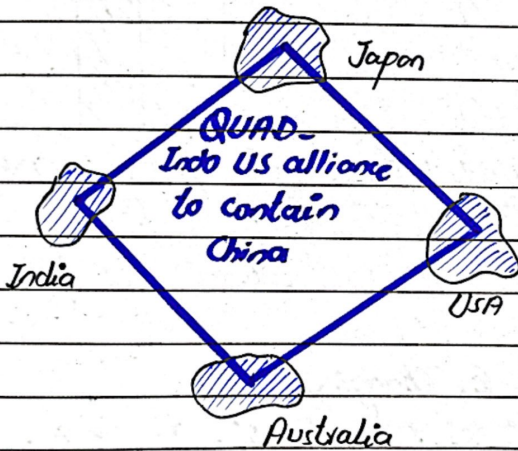 Japan
QUAD-
Indo US alliance
to contain
China
India
USA
Australia